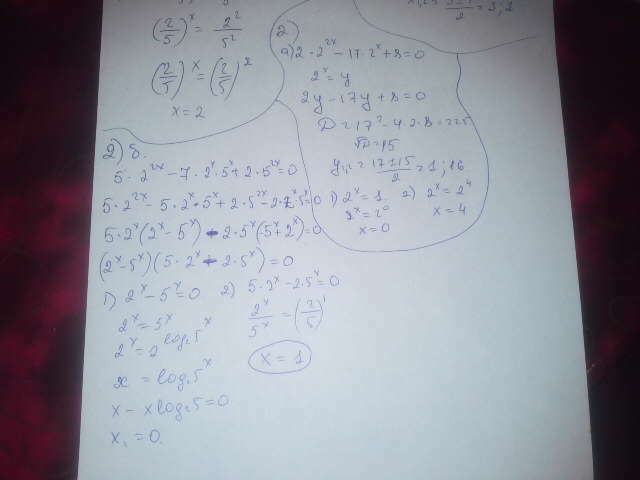 (2/5)^x = 2²/5²
(2/5)^x = (2/5)²
x = 2
2)
а) 2·2^2x − 17·2^x + 8 = 0
2^x = y
2y − 17y + 8 = 0
D = 17² − 4·2·8 = 225
√D = 15
y₁,₂ = (17±15)/2 = 1; 16
1) 2^x = 1
2^x = 2⁰
x = 0
2) 2^x = 2⁴
x = 4
2) б.
5·2^2x − 7·2^x·5^x + 2·5^2x = 0
5·2^2x − 5·2^x·5^x + 2·5^2x − 2·2^x·5^x = 0
5·2^x(2^x − 5^x) − 2·5^x(5^x + 2^x) = 0
(2^x − 5^x)(5·2^x − 2·5^x) = 0
1) 2^x − 5^x = 0
2^x = 5^x
2^x = 2^log₂5^x
x = log₂5^x
x − x log₂5 = 0
x₁ = 0.
2) 5·2^x − 2·5^x = 0
2^x/5^x = (2/5)^1
x = 1